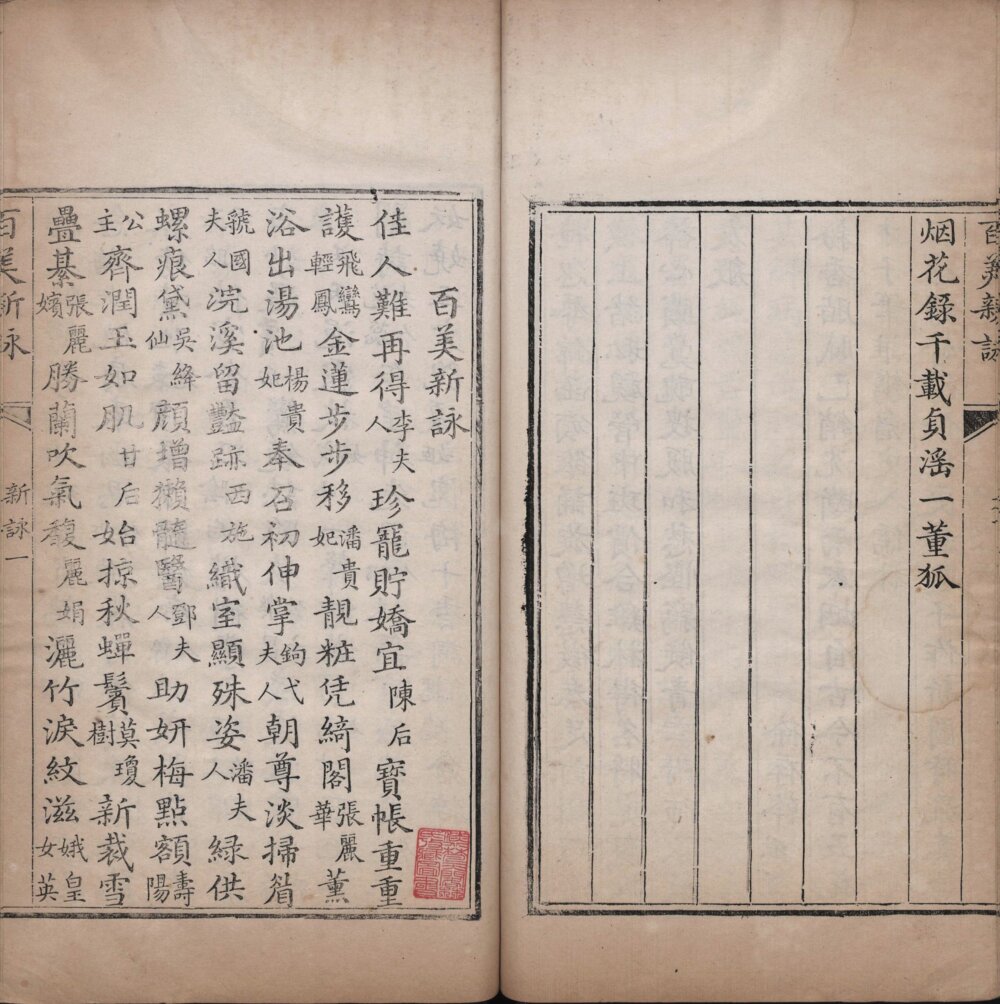 百美新詠
烟花錄千載貞滛一董狐
百美新詠
佳人難再得李夫人珍寵貯嬌宜陳后寶帳重重
護飛鸞輕鳳金蓮步步移潘貴妃靚粧凭綺閣張麗華薰
浴出湯池楊貴妃奉召初伸掌鉤弋夫人朝尊淡掃睂
虢國夫人浣溪留豔跡西施織室顯殊姿潘夫人綠供
螺痕黛吳絳仙顔增獺髓醫鄧夫人助妍梅點額壽陽
公主齊潤玉如肌甘后始掠秋蟬鬢莫瓊樹新裁雪
疊棊張麗嬪勝蘭吹氣馥麗娟灑竹淚紋滋娥皇女英
百美新詠 新詠一